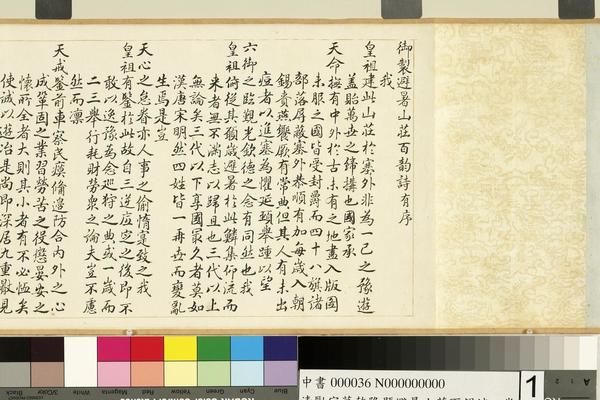 御製避暑山莊百韻詩有序
我
皇祖建此山莊於塞外非為一己之豫遊
蓋貽萬世之締構也國家承
天命撫有中外於古未有之地盡入版圖
未服之國皆受封爵而四十八旗諸
部落屏蔽塞外恭順有加每歲入朝
錫賚燕饗厥有常典但其人有未出
痘者以進塞為懼延頸舉踵以望
六御之臨覲光欽德之念有同然也我
皇祖俯從其願歲避暑於此鱗集仰流而
來者無不滿志以歸且也三代以上
無論矣三代以下享國最久者莫如
漢唐宋明然四姓皆一再世而變亂
生焉是豈
天心之怠眷亦人事之偷惰寔致之我
皇祖有鑒於此故自三逆底定之後即不
敢以逸豫為念巡狩之典或一歲而
二三舉行耗財勞眾之論夫豈不慮
然而凛
天戒鑒前車察民瘼備邊防合內外之心
成鞏固之業習勞苦之役懲宴安之
懷所全者大則其小者有不必恤矣
使誠以遊冶是尚即深居九重散見
中書 000036 N000000000
1
Black
3/Color
White
Magenta
Red
Yellow
Green
Cyan
Blue